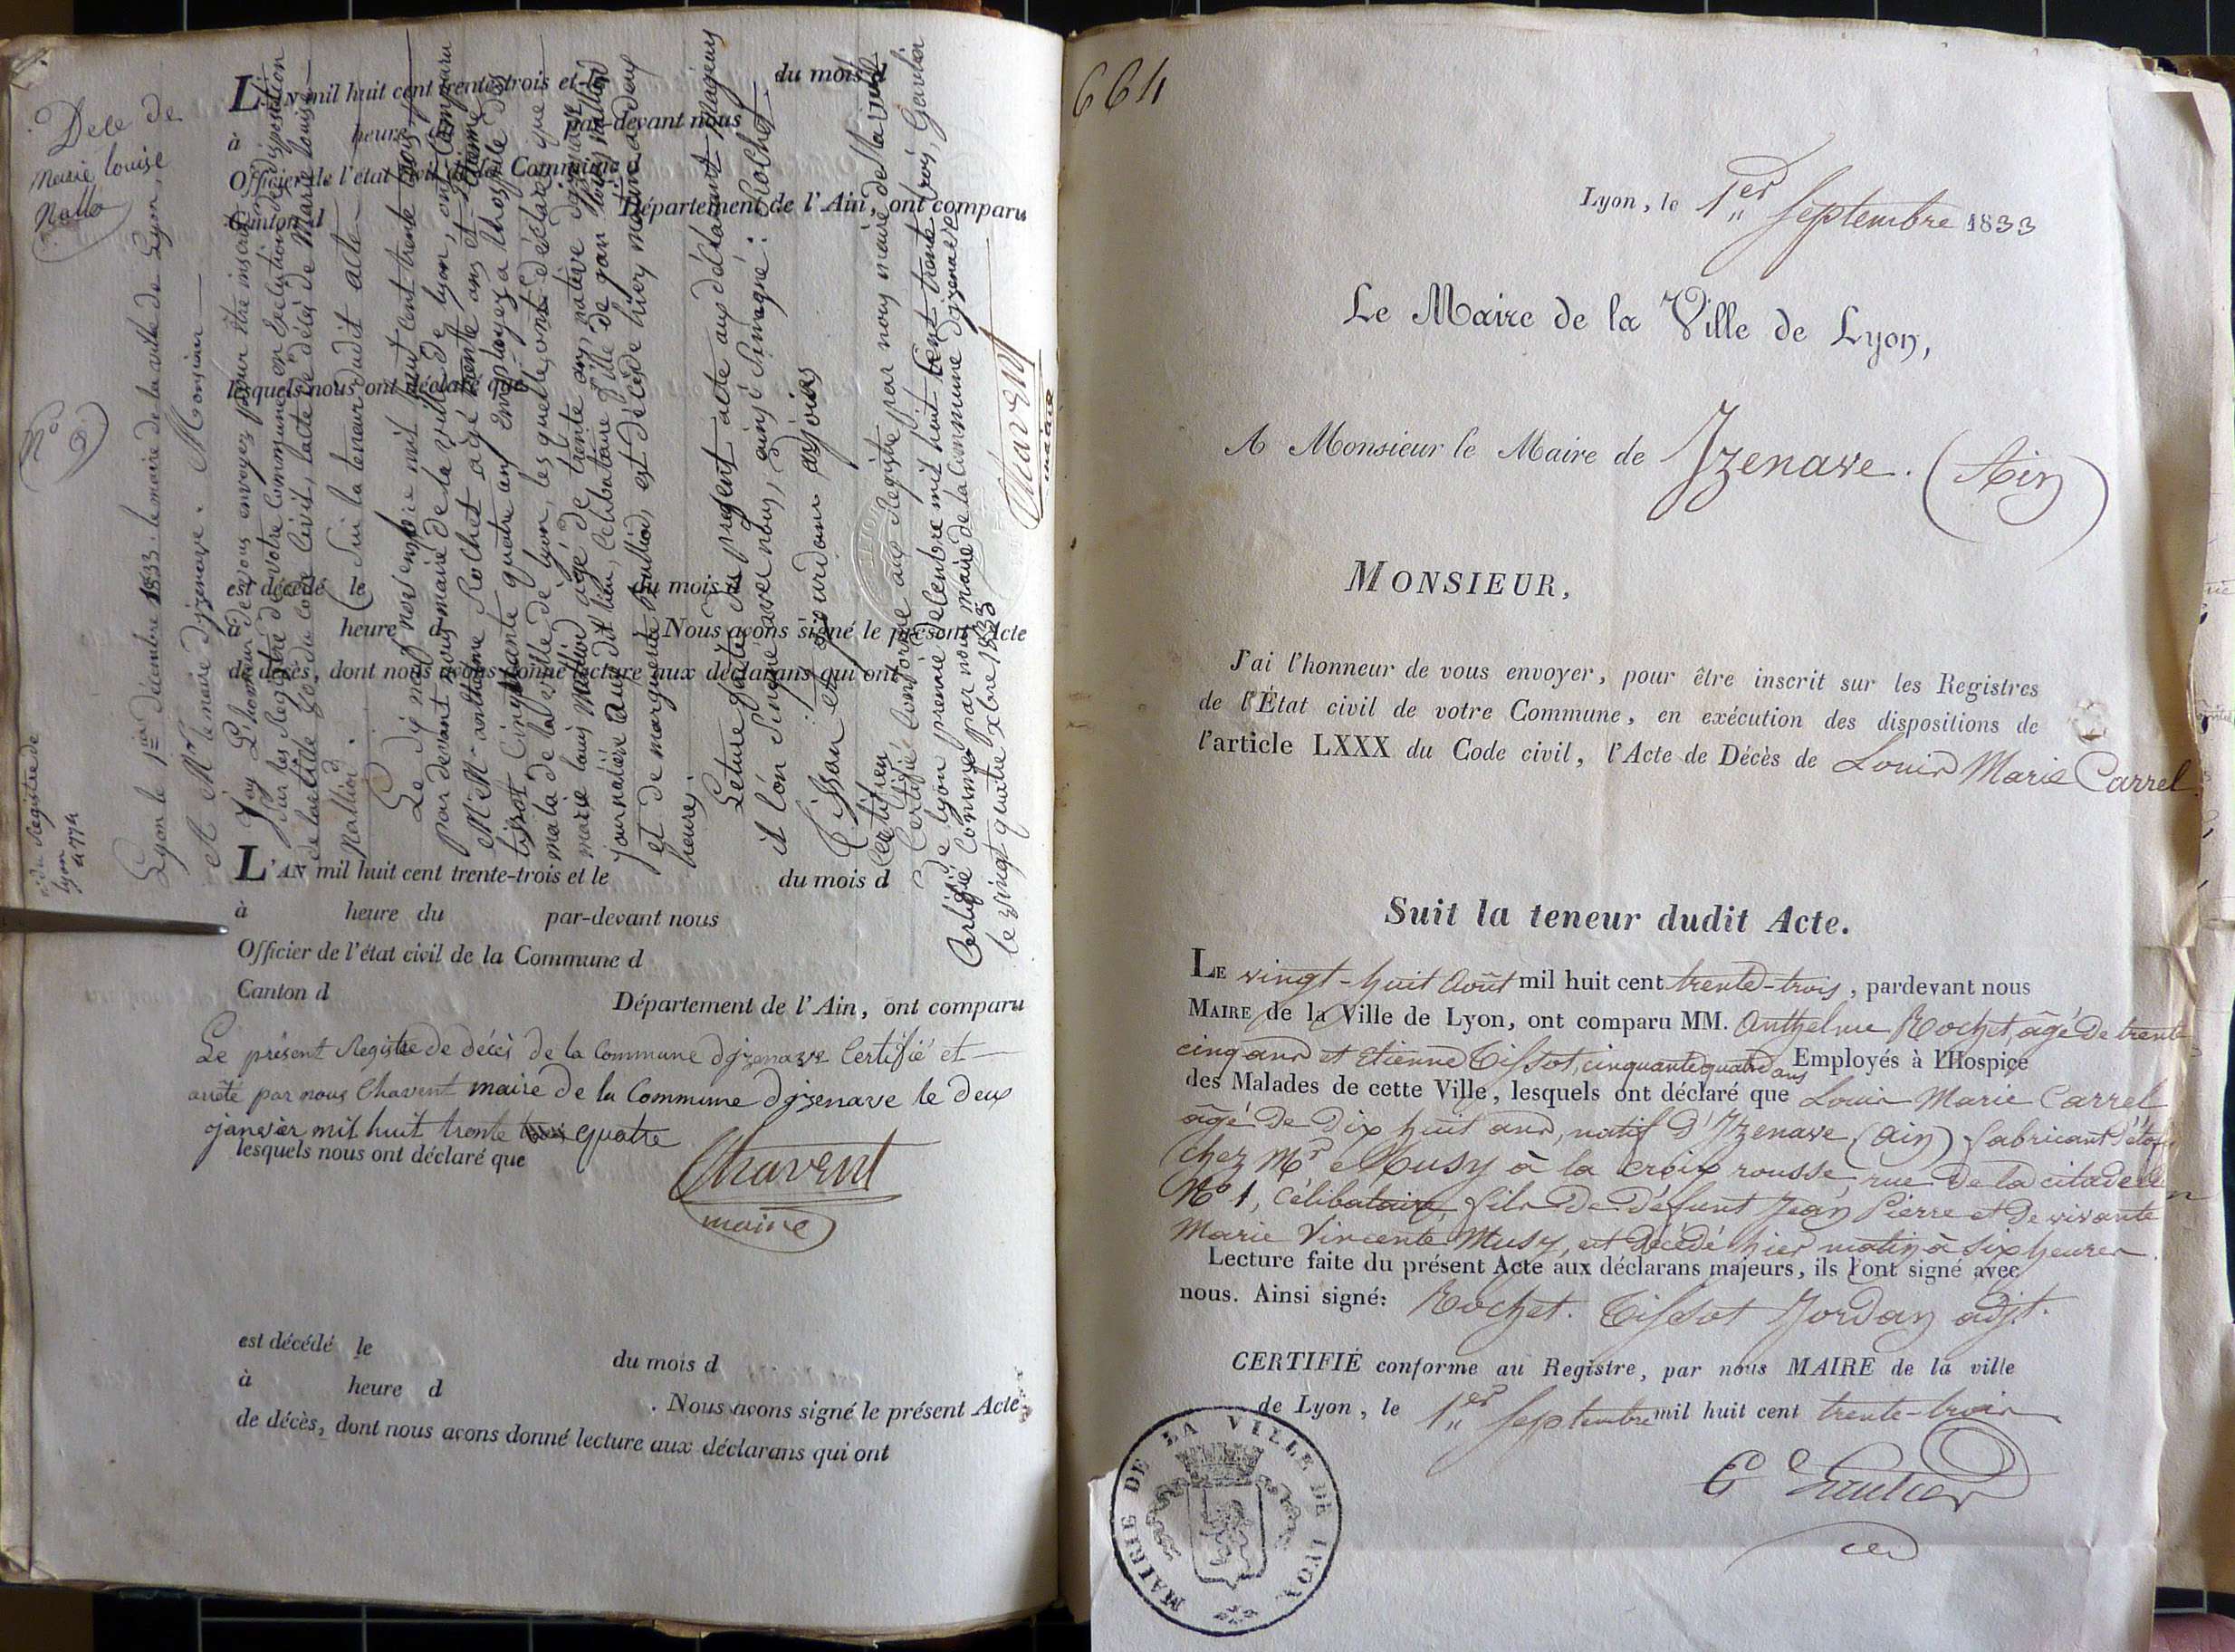 L'AN mil huit cent trente-trois et le du mois d
à heure du par-devant nous
Officier de l'état civil de la Commune d
Canton d Département de l'Ain, ont comparu
lesquels nous ont déclaré que
est décédé le du mois d
à heure d . Nous avons signé le présent Acte
de décès, dont nous avons donné lecture aux déclarans qui ont
Dece de
Marie louise
N° 9
Lyon le 1er décembre 1833. le maire de la ville de Lyon
et Mr le maire d'izenave. Monsieur
J'ay L'honneur de vous envoyez pour être inscrit
sur les Registre de votre Commune, en Exécution des disposition
de l'article 80 du code Civil, l'acte de décès de Marie Louise
Mallion. Suit la teneur dudit acte
Le dix neuf novembre mil huit cent trente trois
par devant nous maire de la ville de lyon, ont Comparu
MM. anthelme Rochet agé trente ans et Etienne
tissot, Cinquante quatre an employez a lhospile des
malade de la ville de lyon, les quelles ont déclarés que
marie louis Mallion agé de trente ans, native d'izenave
journalière audit lieu, Celibataire fille de jean louis mallion
et de marguerite Mullion, est décédé hier matin a deux
heures
Lecture faite du present acte aux déclarant Majeurs
il l'on Singné avec nous, ainsi Singné: Rochet
Tissot et jourdan adjoint
Certifié Conforme aux Registre par nous maire de la ville
de lyon premier décembre mil huit Cent trente trois, Gautier
Certifié Conforme par nous maire de la Commune dizenave
le vingt quatre xbre 1833
Chavent
maire
L'AN mil huit cent trente-trois et le du mois d
à heure du par-devant nous
Officier de l'état civil de la Commune d
Canton d
Département de l'Ain, ont comparu
Le présent Registre de décès de la Commune d'izenave Certifié et
arrêté par nous Chavent maire de la Commune d'izenave le deux
janvier mil huit trente quatre
lesquels nous ont déclaré que
Chavent
maire
est décédé le du mois d
à heure d . Nous avons signé le présent Acte
de décès, dont nous avons donné lecture aux déclarans qui ont
664
Lyon, le 1er Septembre 1833
Le Maire de la Ville de Lyon,
A Monsieur le Maire de Izenave. (Ain)
MONSIEUR,
J'ai l'honneur de vous envoyer, pour être inscrit sur les Registres
de l'État civil de votre Commune, en exécution des dispositions de
l'article LXXX du Code civil, l'Acte de Décès de Louis Marie Carrel
Suit la teneur dudit Acte.
LE vingt-huit Août mil huit cent trente-trois, pardevant nous
MAIRE de la Ville de Lyon, ont comparu MM. Anthelme Rochet, âgé de trente
cinq ans et Etienne Tissot, cinquante quatre ans Employés à l'Hospice
des Malades de cette Ville, lesquels ont déclaré que Louis Marie Carrel
âgé de dix huit ans, natif d'Izenave (Ain) fabricant d'étof
chez Mr Musy à la croix rousse, rue de la citadelle
N° 1, Célibataire, fils de défunt Jean Pierre et de vivante
Marie Vincente Musy, est décédé hier matin à six heures.
Lecture faite du présent Acte aux déclarans majeurs, ils l'ont signé avec
nous. Ainsi signé: Rochet. Tissot Jordan adjt.
CERTIFIÉ conforme au Registre, par nous MAIRE de la ville
de Lyon, le 1er Septembre mil huit cent trente-trois
Gautier
MAIRIE DE LA VILLE DE LYON